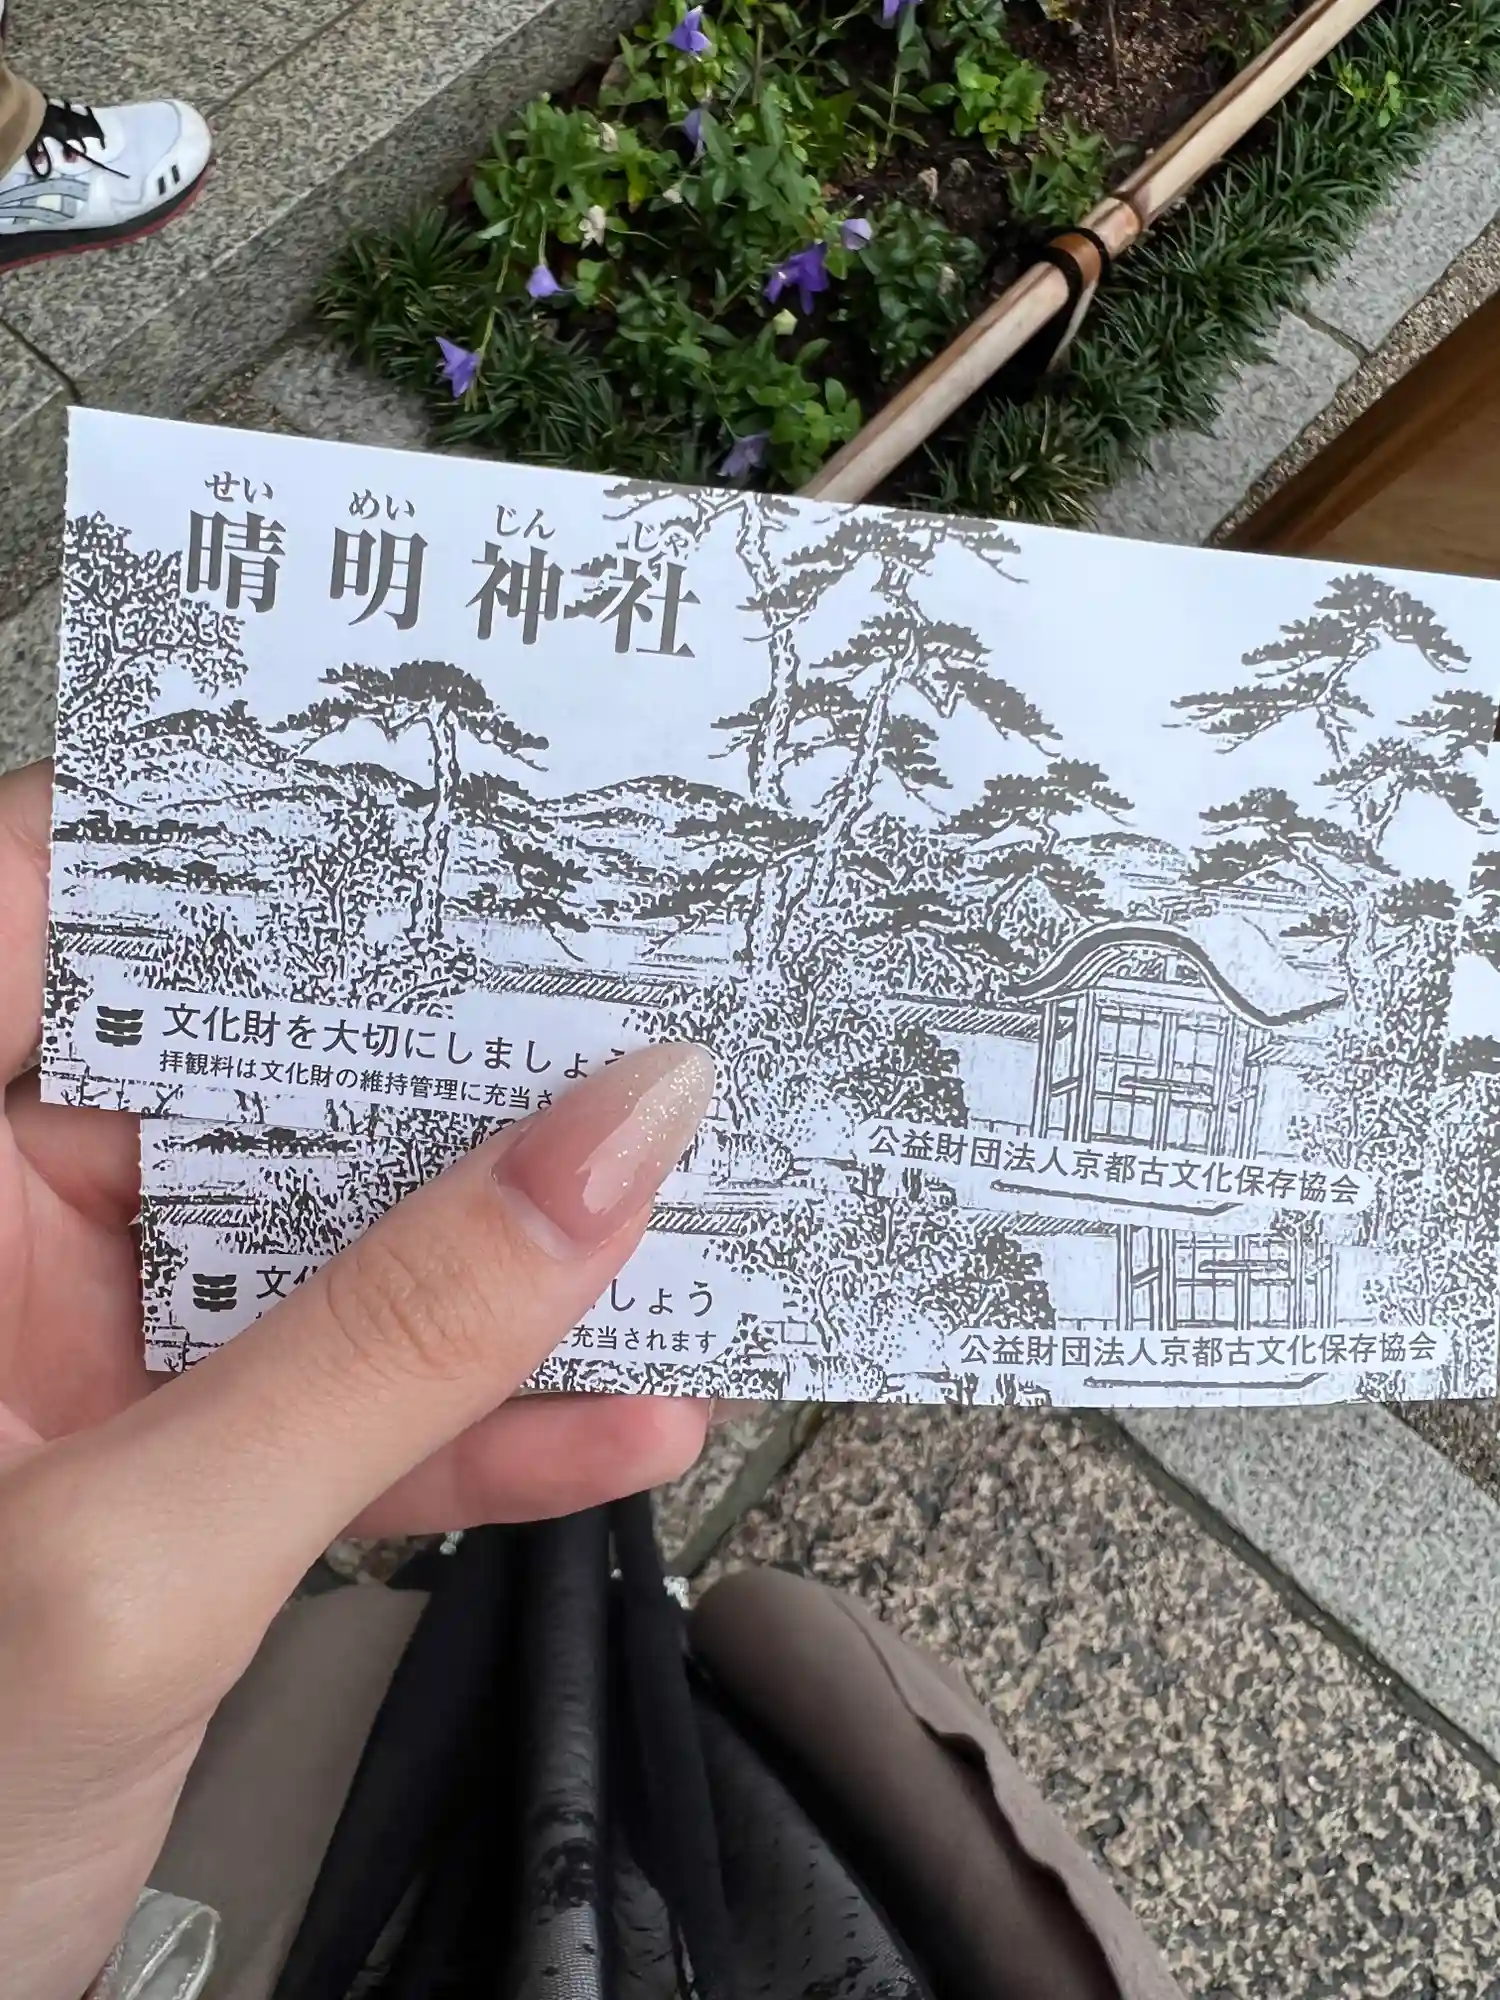 せい めい じん じゃ
晴明神社
文化財を大切にしましょう
拝観料は文化財の維持管理に充当さ
公益財団法人京都古文化保存協会
文化 しょう
充当されます
公益財団法人京都古文化保存協会